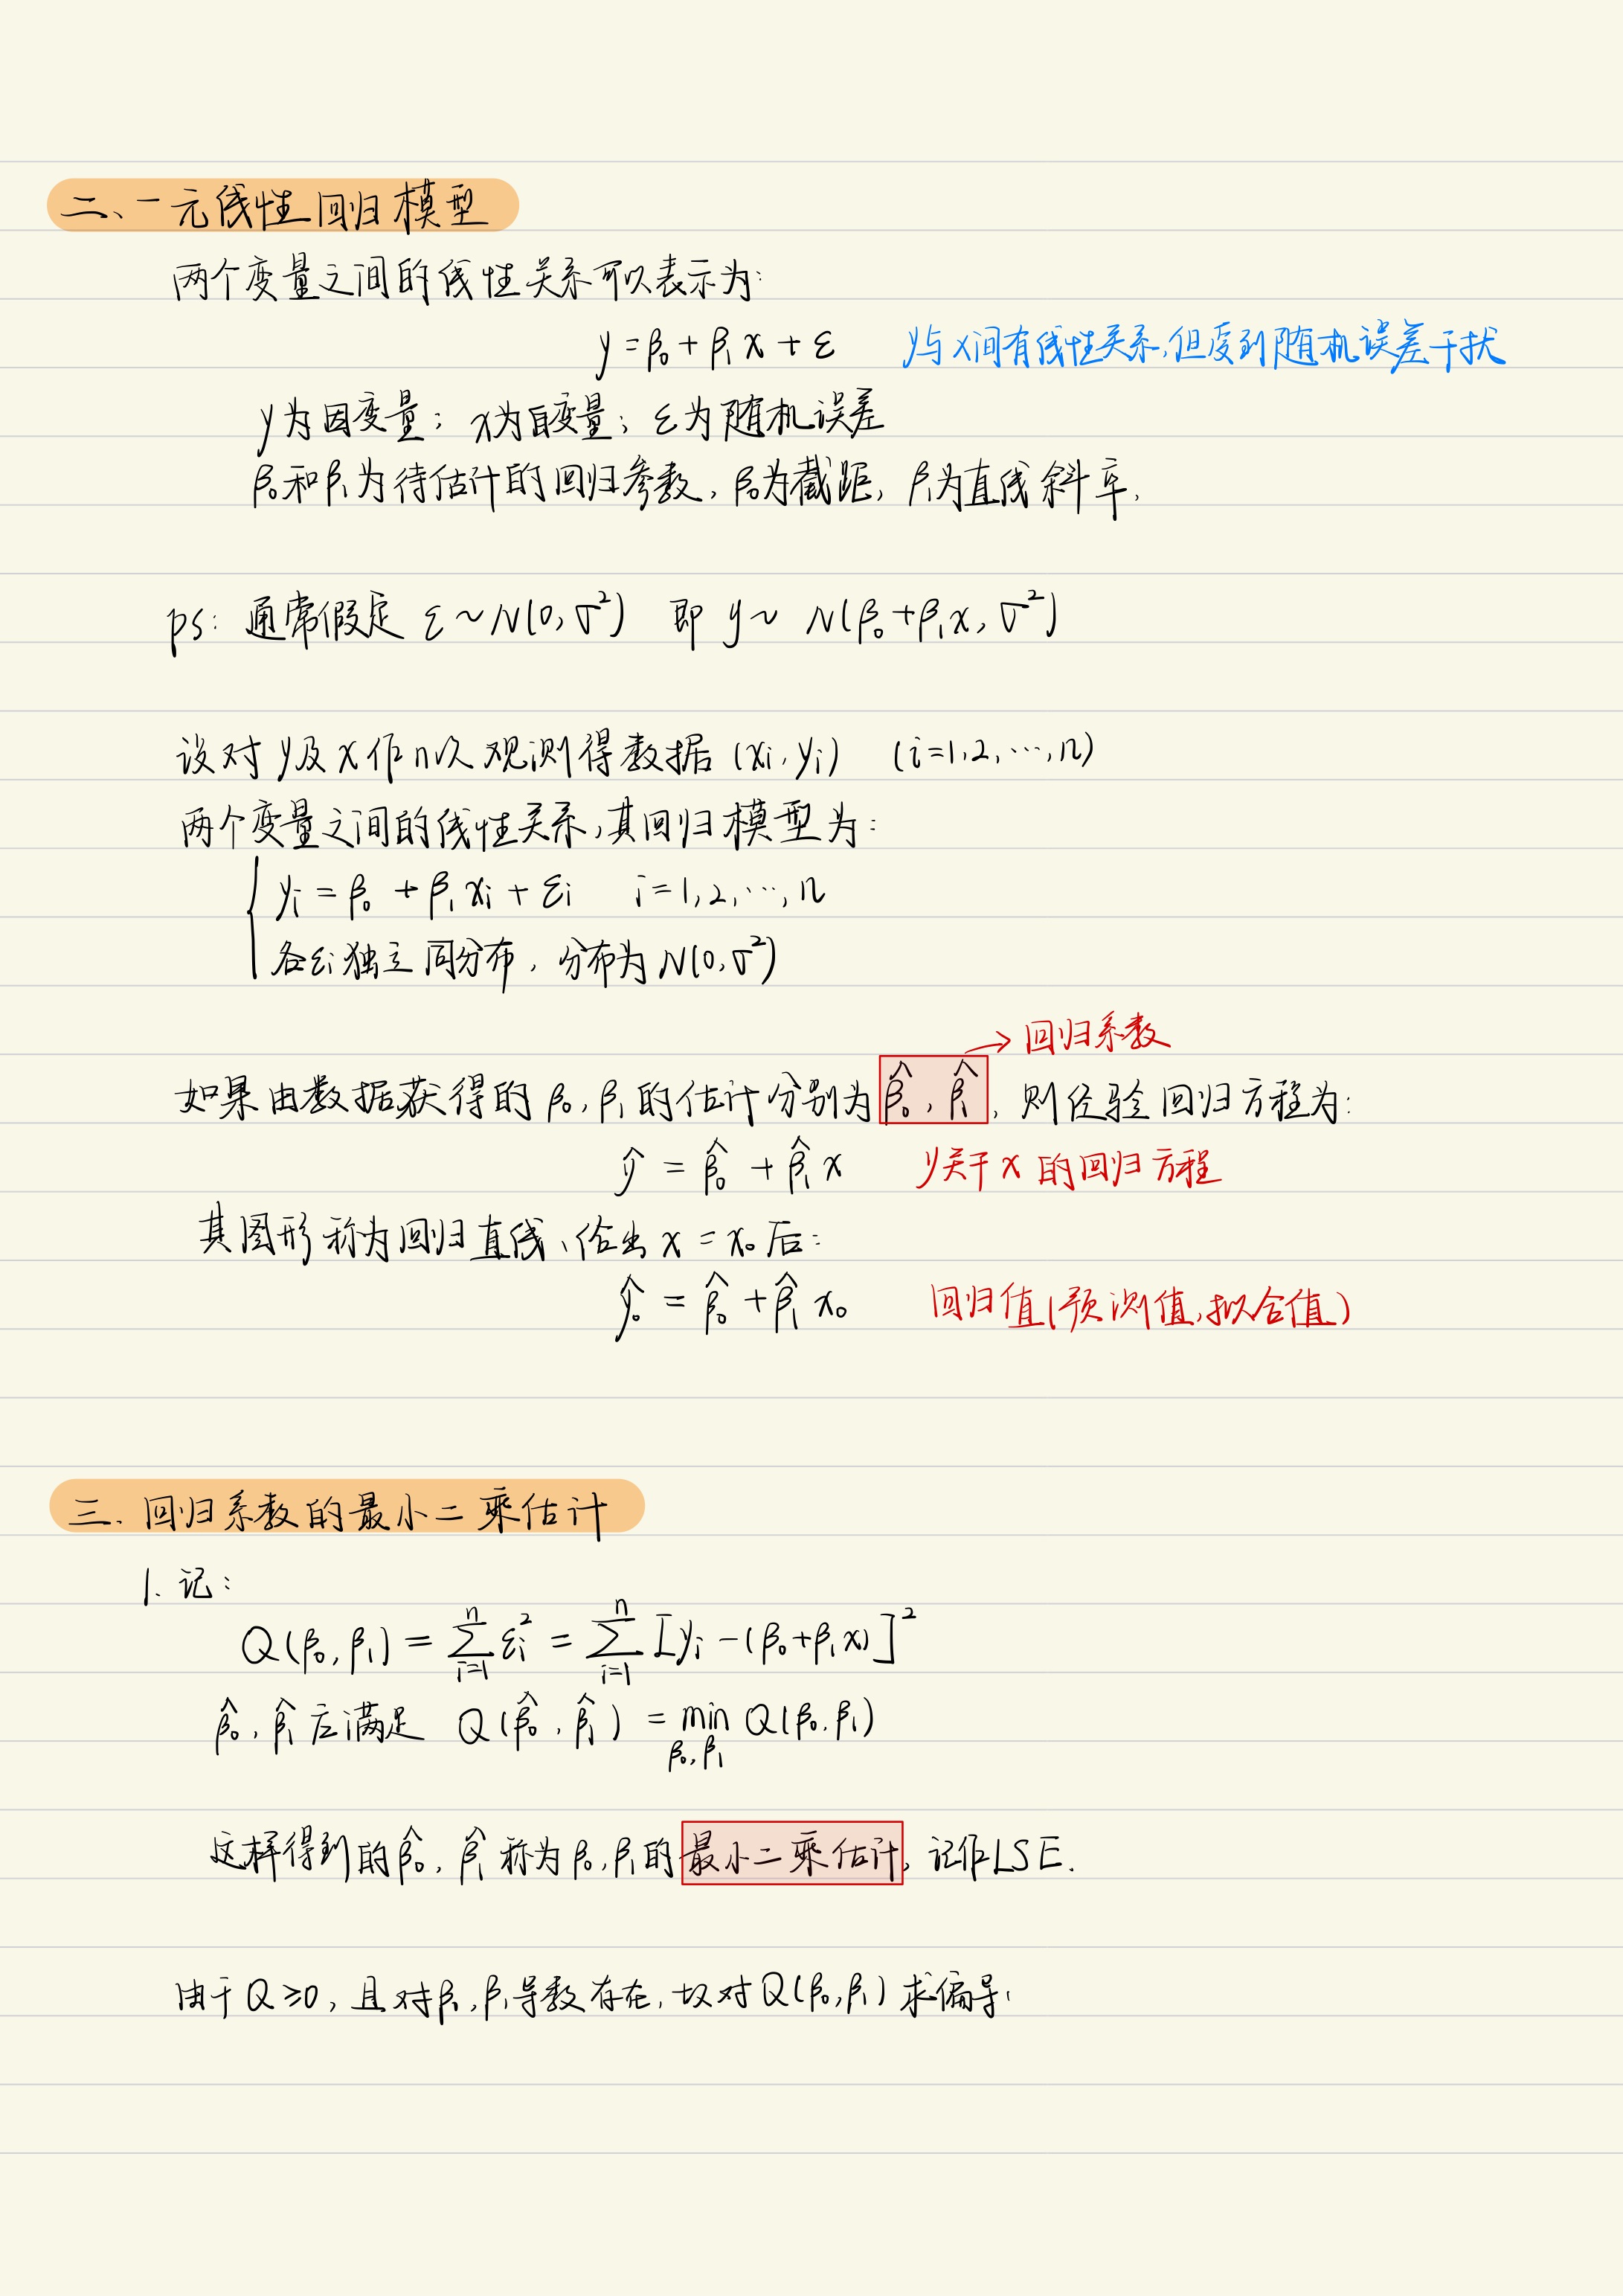 二、一元线性回归模型
两个变量之间的线性关系可以表示为:
y = β₀ + β₁x + ε  y与x间有线性关系,但受到随机误差干扰
y为因变量; x为自变量; ε为随机误差
β₀和β₁为待估计的回归参数, β₀为截距, β₁为直线斜率,
ps: 通常假定 ε ~ N(0, σ²) 即 y ~ N(β₀ + β₁x, σ²)
设对y及x作n次观测得数据 (xi, yi) (i=1,2,⋯,n)
两个变量之间的线性关系,其回归模型为:
yi = β₀ + β₁xi + εi  i=1,2,⋯,n
各εi独立同分布, 分布为N(0,σ²)
→回归系数
如果由数据获得的 β₀, β₁的估计分别为β̂₀, β̂₁, 则经验回归方程为:
ŷ = β̂₀ + β̂₁x  y关于x的回归方程
其图形称为回归直线、给出 x = x₀后:
ŷ₀ = β̂₀ + β̂₁x₀  回归值(预测值,拟合值)
三. 回归系数的最小二乘估计
1. 记:
Q(β₀, β₁) = ∑ⁿᵢ₌₁ εi² = ∑ⁿᵢ₌₁ [yi - (β₀+β₁x)]²
β̂₀, β̂₁后满足 Q(β̂₀, β̂₁) = min Q(β₀, β₁)
β₀, β₁
这样得到的β̂₀, β̂₁称为β₀, β₁的最小二乘估计, 记作LSE.
由于Q≥0, 且对β₁, β₁导数存在, 故对Q(β₀, β₁)求偏导: